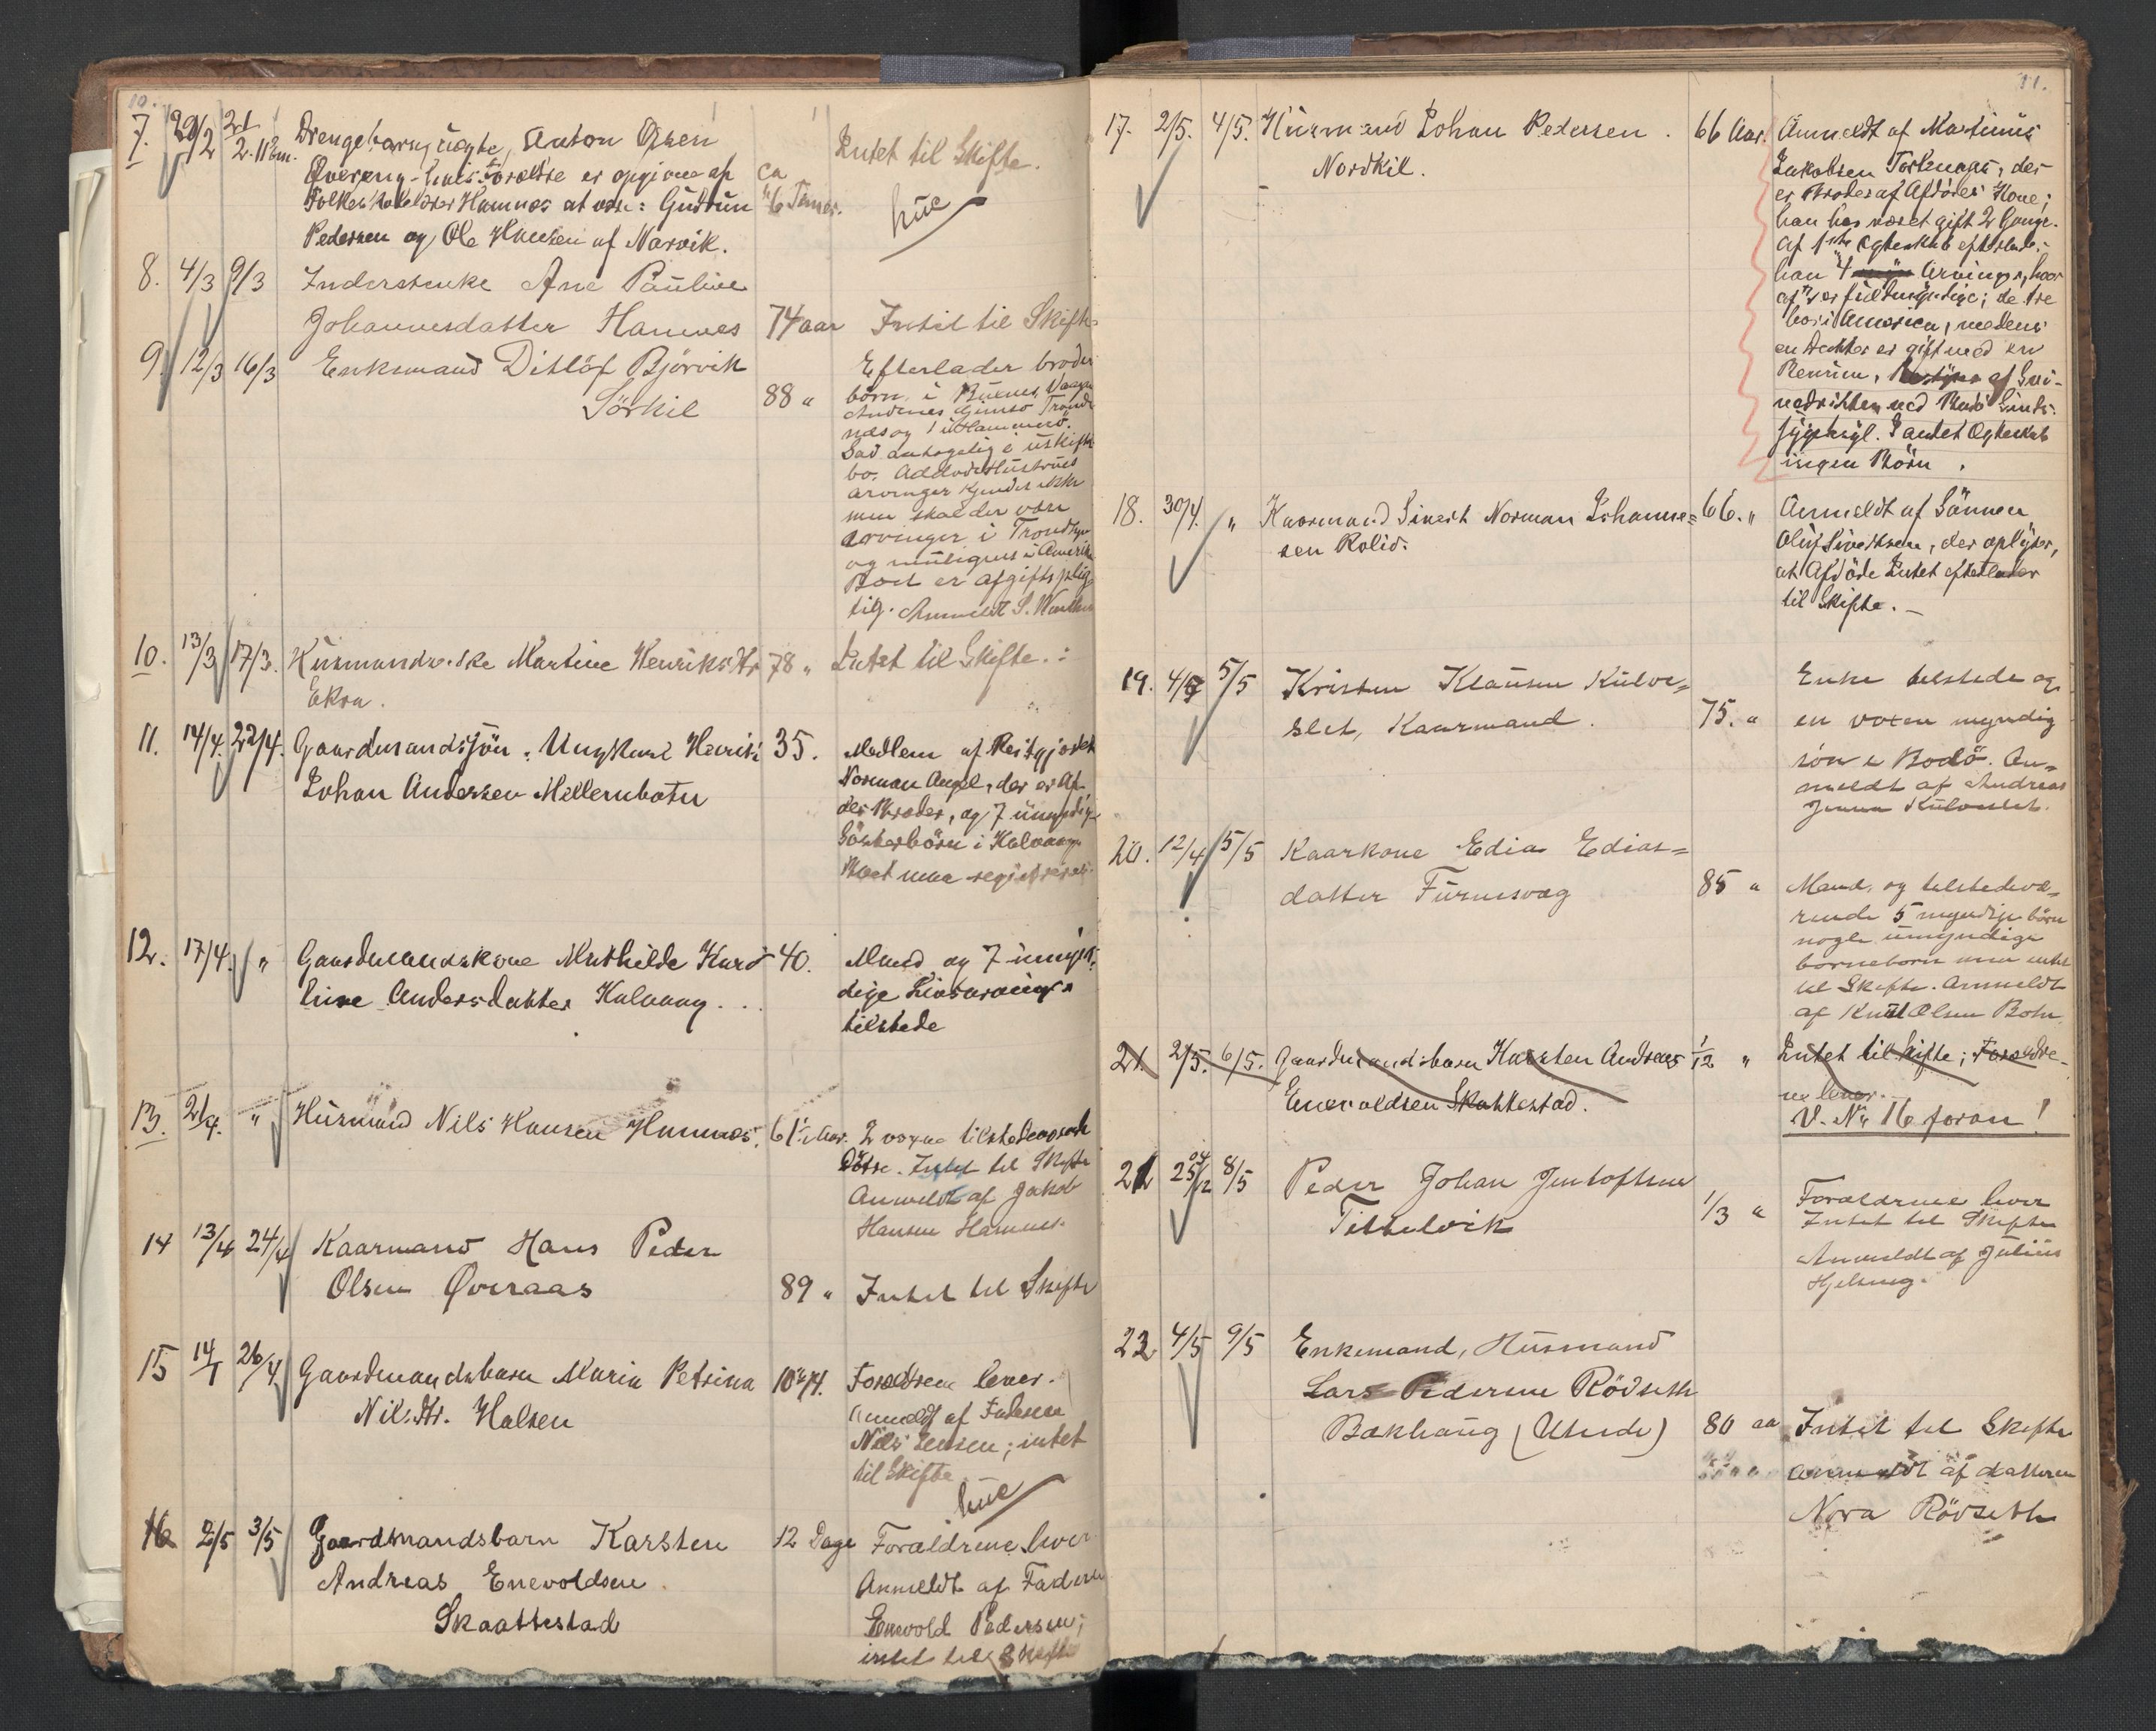 10.
7. 20/2 21/2. 11 Em. Drengebarn, uægte, Anton Olsen Intet til Skifte.
Øvereng - hvis Forældre er opgivne af ca
Folkeskolelærer Hamnes at være: Gudrun 6 Timer.
Pedersen og Ole Hansen af Narvik.
8. 4/3 9/3 Inderstenke Ane Pauline
Johannesdatter Hamnes 74 aar Intet til Skifte
9. 12/3 16/3 Enkemand Ditlöf Björvik Efterlader broder
Sörkil 88 " börn i
og 1 i Hammerö.
Sad antagelig i uskifte
bo. Afdøde Hustrues
arvinger kjendes ikke
men skal der være
arvinger i Trondhjem
og muligens i Amerika
Boet er afgiftsplig
tig. Anmeldt S.
10. 13/3 17/3. Husmandsenke Martine Henriksdtr 78 " Intet til Skifte.
Ekra.
11. 14/4. 22/4. Gaardmandssön, Ungkarl Henrik 35. Mellem af
Johan Andersen Mellembotn Norman Angel, der er Af-
dødes Broder, og 7 umyndige
Sösterbörn i Kalvaag.
Boet maa registreres.
12. 17/4. " Gaardmandskone Mathilde Karo- 40. Mand og 7 umyn-
line Andersdatter Kalvaag. dige Livsarvinger
tilstede
13. 21/4. " Husmand Nils Hansen Hamnes. 61 1/2 Aar. 2 voxne tilstedeværende
Døtre. Intet til Skifte
Anmeldt af Jakob
Hansen Hamnes.
14 13/4 24/4 Kaarmand Hans Peder
Olsen Øveraas 89 " Intet til Skifte
15 14/1 26/4 Gaardmandsbarn Maria Petrina Forældrene lever.
Nilsdtr. Halsen Anmeldt af Faderen
Nils Jensen; intet
til Skifte
16 2/5 3/5 Gaardmandsbarn Karsten 12 Dage Forældrene lever
Andreas Enevoldsen Anmeldt af Faderen
Skaattestad Enevold Pedersen;
intet til Skifte
11.
17. 2/5. 4/5. Husmand Johan Pedersen. 66 Aar. Anmeldt af Martinus
Nordkil. Jakobsen Tortenaas, der
er Broder af Afdødes Kone;
han har været gift 2 Gange.
Af 1ste Ægteskab efterlader
han 4 Arvinger, hvor
af er fuldmyndige; de tre
bor i America, medens
en Datter er gift med en
af Svi-
ved Bodö Sinds-
sygeasyl. I andet Ægteskab
ingen Börn.
18. 30/4. " Kaarmand Sivert Norman Johanne= 66. " Anmeldt af Sönnen
sen Rolid. Oluf Sivertsen, der oplyser,
at Afdöde Intet efterlader
til Skifte.
19. 4/5 5/5 Kristen Klausen Kulve= Enke tilstede og
slet, Kaarmand. 75. " en voxen myndig
sön i Bodö. An=
meldt af Andreas
Kulveslet.
20. 12/4 5/5 Kaarkone Edia Edias=
datter Furnesvag 85 " Mand, og tilstedevæ=
rende 5 myndige börn
nogle umyndige
barnebarn men intet
til Skifte. Anmeldt
af Knut Olsen Botn
21. 2/5. 6/5. Gaardmandsbarn Karsten Andreas 1/12 " Intet til Skifte; Forældre-
Enevoldsen Skattestad. ne lever.
V. Nr 16 foran!
21 25/12 04 8/5 Peder Johan Jentoftsen Forældrene lever
Tittelvik 1/3 " Intet til Skifte
Anmeldt af Julius
Hjelseng.
22 4/5 9/5 Enkemand, Husmand
Lars Pedersen Rödseth
Bakhaug (Utinde) 80 aar Intet til Skifte
Anmeldt af datteren
Nora Rödseth